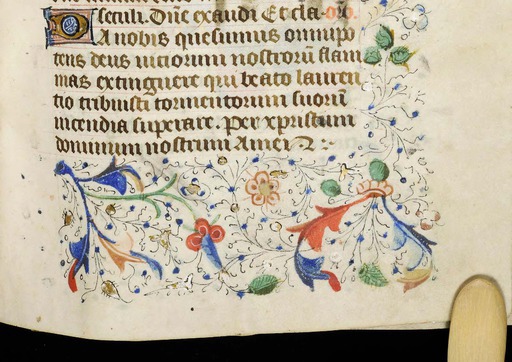 seculi. Dñe exaudi Et cla- oro.
Da nobis quesumus omnipo
tens deus uiciorum nostrorũ flam
mas extinguere qui beato lauren
tio tribuisti tormentorum suorũ
incendia superare. Per xpristum
dominum nostrum Amen